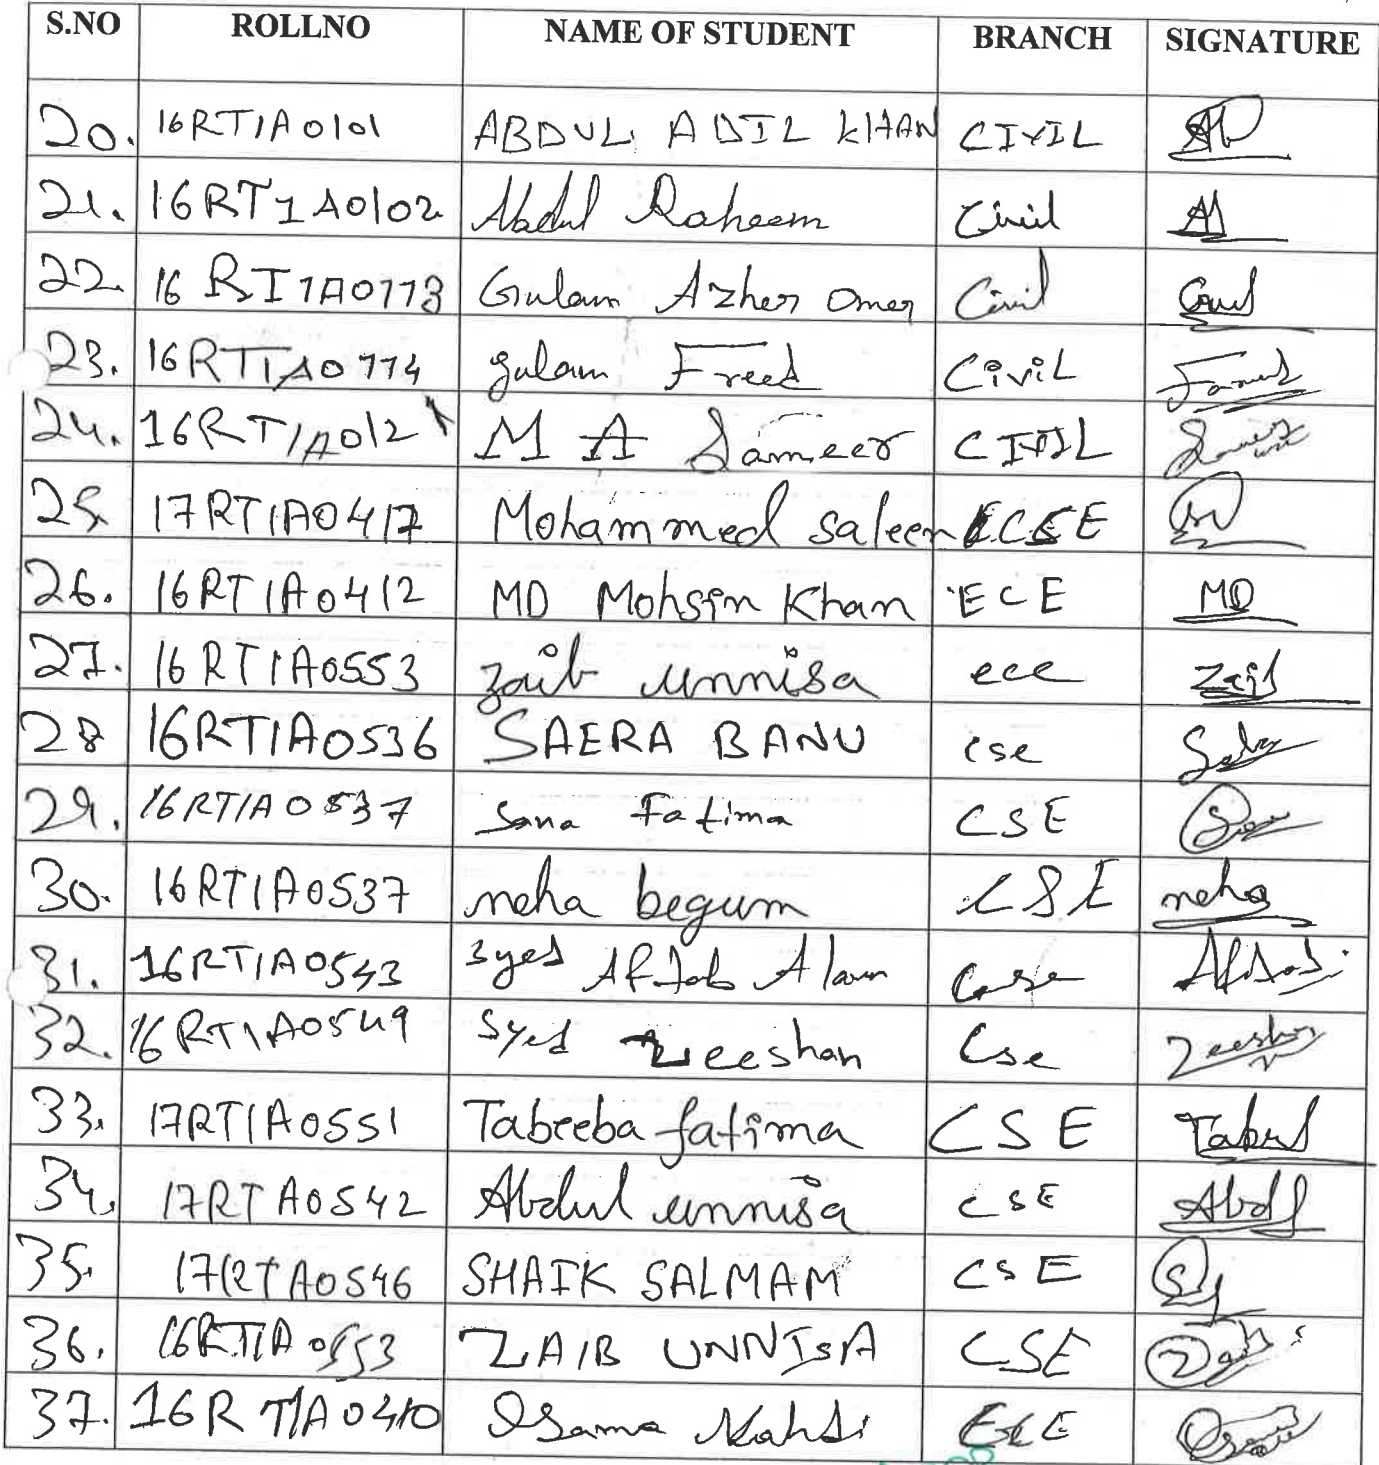 S.NO ROLLNO NAME OF STUDENT BRANCH SIGNATURE
20. 16RT1A0101 ABDUL ADIL KHAN CIVIL
21. 16RT1A0102 Abdul Raheem Civil
22. 16RT1A0113 Gulam Azher Omer Civil
23. 16RT1A0114 gulam Freed CiviL
24. 16RT1A012 M A Sameer CIVIL
25. 17RT1A0417 Mohammed Saleem ECE
26. 16RT1A0412 MD Mohsin Khan ECE MD
27. 16RT1A0553 zaib unnisa ece Zaib
28 16RT1A0536 SAERA BANU cse
29. 16RT1A0537 Sana Fatima CSE
30. 16RT1A0537 neha begum CSE neha
31. 16RT1A0543 Syed Aftab Alam Cse Aftab
32. 16RT1A0549 Syed Zeeshan Cse Zeeshan
33. 17RT1A0551 Tabeeba fatima CSE
34. 17RTA0542 Abdul unnisa CSE
35. 17RTA0546 SHAIK SALMAM CSE
36. 16RT1A0553 ZAIB UNNISA CSE
37. 16RT1A0410 Osama Mahdi ECE